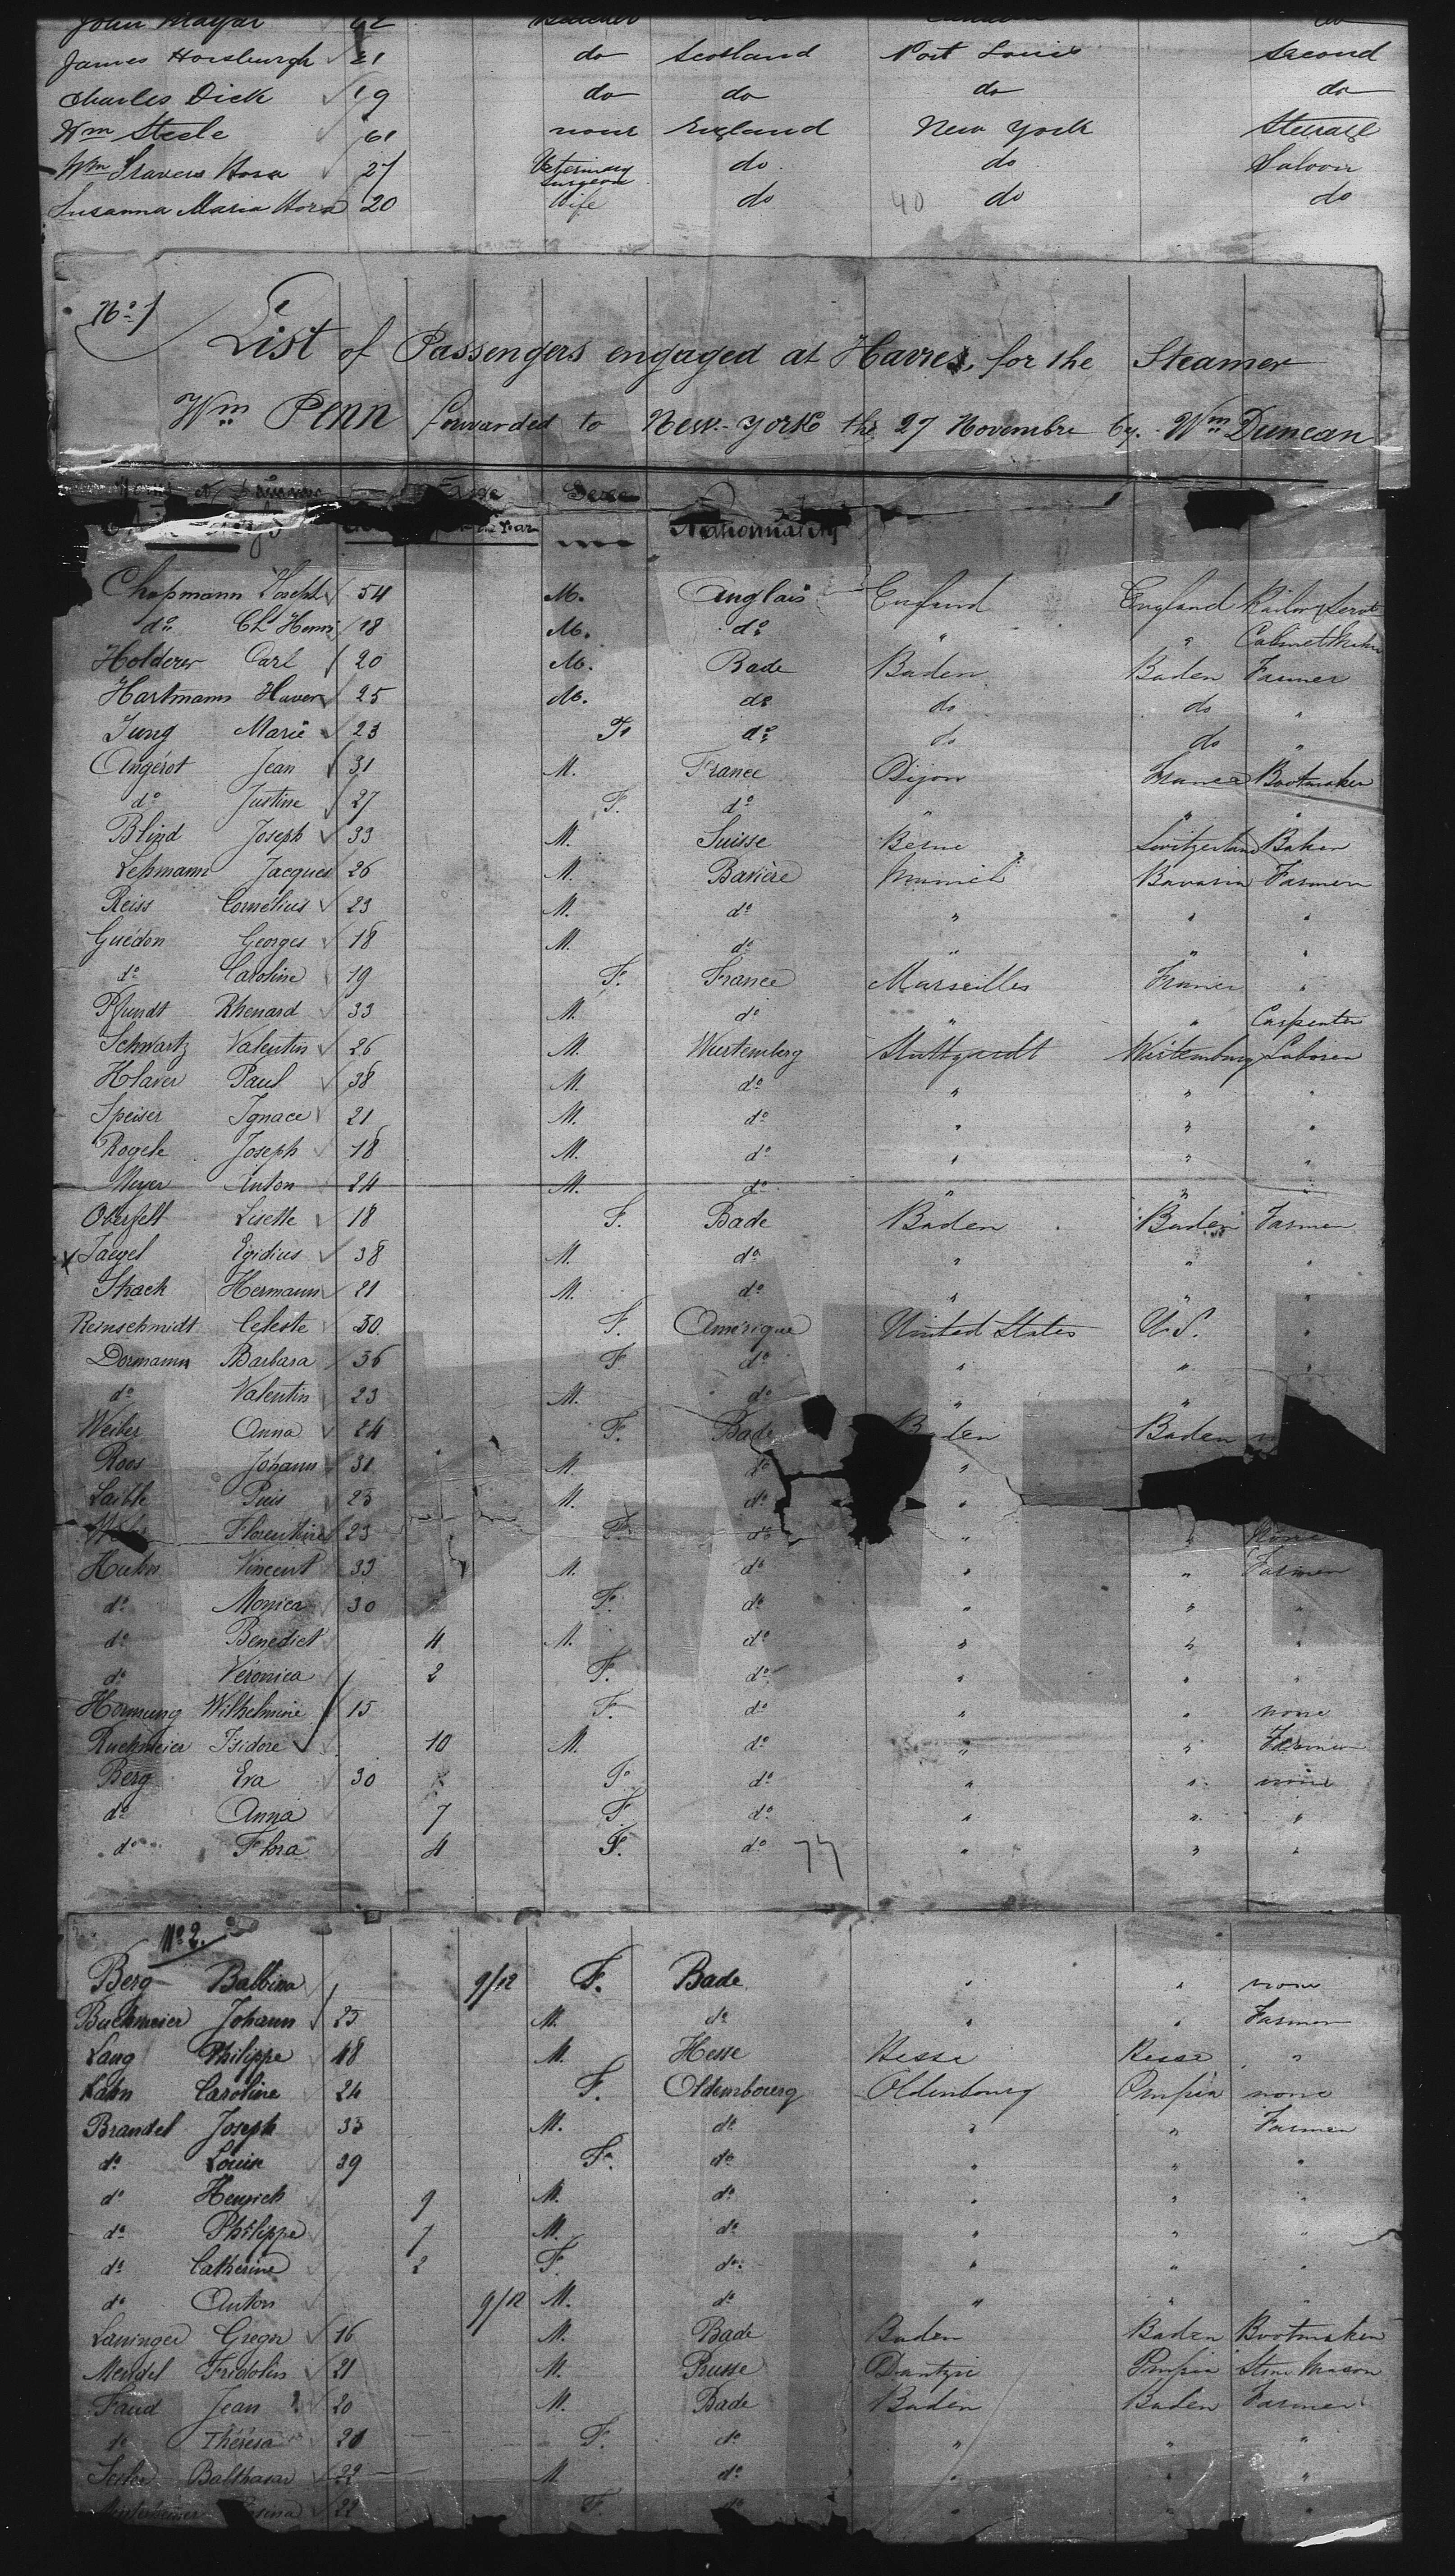 John Mayar 62
James Horsburgh 21 do Scotland Port Louis Second
Charles Dick 19 do do do do
Wm Steele 61 none England New York Steerage
Wm Travers Hora 27 Veterinary Surgeon do do Saloon
Susanna Maria Hora 20 Wife do 40 do do
No 1
List of Passengers engaged at Havre, for the Steamer
Wm Penn forwarded to New-York the 27 Novembre by Wm Duncan
Sexe
Year Nationality
Chapmann Joseph 54 M. Anglais England England
do Ch Henri 18 M. do " " Cabinet Maker
Holderer Carl 20 M. Bade Baden Baden Farmer
Hartmann Xaver 25 M. do do do "
Jung Marie 23 F. do do do "
Angérot Jean 31 M. France Dijon France Bootmaker
do Justine 27 F. do " " "
Blind Joseph 33 M. Suisse Berne Switzerland Baker
Lehmann Jacques 26 M. Bavière Munich Bavaria Farmer
Reiss Cornélius 23 M. do " " "
Guédon Georges 18 M. do " " "
do Caroline 19 F. France Marseilles France "
Pfundt Rhenard 33 M. do " " Carpenter
Schwartz Valentin 26 M. Wurtemberg Stuttgardt Wurtemburg Laborer
Klaver Paul 38 M. do " " "
Speiser Ignace 21 M. do " " "
Rogele Joseph 18 M. do " " "
Meyer Anton 24 M. do " " "
Oberfelt Lisette 18 F. Bade Baden Baden Farmer
x Jaegel Egidius 38 M. do " " "
Shack Hermann 21 M. do " " "
Reinschmidt Celeste 30 F. Amérique United States U.S. "
Dormann Barbara 36 F. do " " "
do Valentin 23 M. do " "
Weiber Anna 24 F. Bade Baden Baden
Roos Johann 31 M. do "
Laible Puis 23 M. do "
Florentine 23 F. do " " None
Huhn Vincent 33 M. do " " Farmer
do Monica 30 F. do " " "
do Benedict 4 M. do " " "
do Véronica 2 F. do " " "
Hornung Wilhelmine 15 F. do " " none
Ruchmeier Isidore 10 M. do " " Farmer
Berg Eva 30 F. do " " none
do Anna 7 F. do " " "
do Flora 4 F. do 77 " " "
No 2.
Berg Balbina 9/12 F. Bade " " none
Buchmeier Johann 25 M. do " " Farmer
Lang Philippe 48 M. Hesse Hesse Hesse "
Kahn Caroline 24 F. Oldembourg Oldenbourg Prussia none
Brandel Joseph 33 M. do " " Farmer
do Louise 39 F. do " " "
do Henrich 9 M. do " " "
do Philippe 7 M. do " " "
do Catherine 2 F. do " " "
do Anton 9/12 M. do " " "
Laninger Gregor 16 M. Bade Baden Baden Bootmaker
Mendel Fridolin 21 M. Prusse Dantzic Prussia Stone Mason
Faud Jean 20 M. Bade Baden Baden Farmer
do Thérésa 20 F. do " " "
Balthasar 22 M do " " "
22 F. do " " "